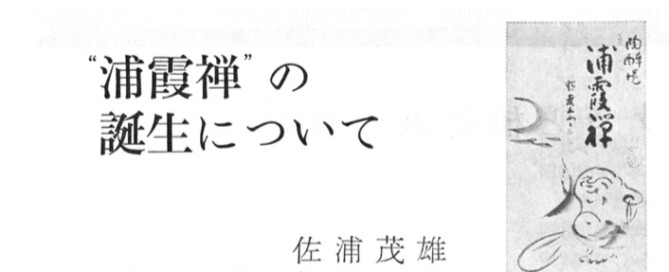 “浦霞禅”の
誕生について
佐浦茂雄
陶酔境
浦霞禅